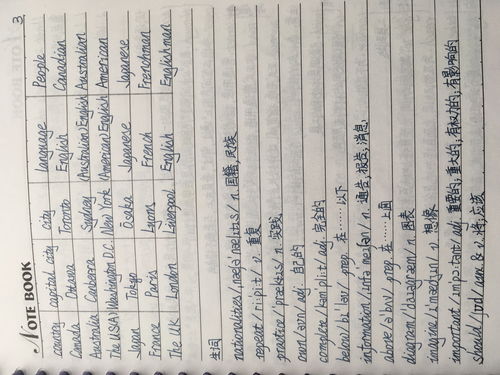 NOTE BOOK
3
country capital city city Language People
Canada Ottawa Toronto English Canadian
Australia Canberra Sydney (Australian) English Australian
The U.S(A) Washington D.C. New York (American) English American
Japan Tokyo Osaka Japanese Japanese
France Paris Lyons French Frenchman
The UK London Liverpool English Englishman
生词
nationalities /ˌnæʃəˈnælətis/ n. 国籍, 民族
repeat /riˈpiːt/ v. 重复
practice /ˈpræktis/ n. 实践
own /əʊn/ adj. 自己的
complete /kəmˈpliːt/ adj. 完全的
below /biˈləʊ/ prep. 在……以下
information /ˌinfəˈmeiʃən/ n. 通告, 报告; 消息
above /əˈbʌv/ prep. 在……上面
diagram /ˈdaiəɡræm/ n. 图表
imagine /iˈmædʒin/ v. 想像
important /imˈpɔːtənt/ adj. 重要的; 重大的; 有权力的; 有影响的
should /ʃəd/ aux & v. 将; 应该